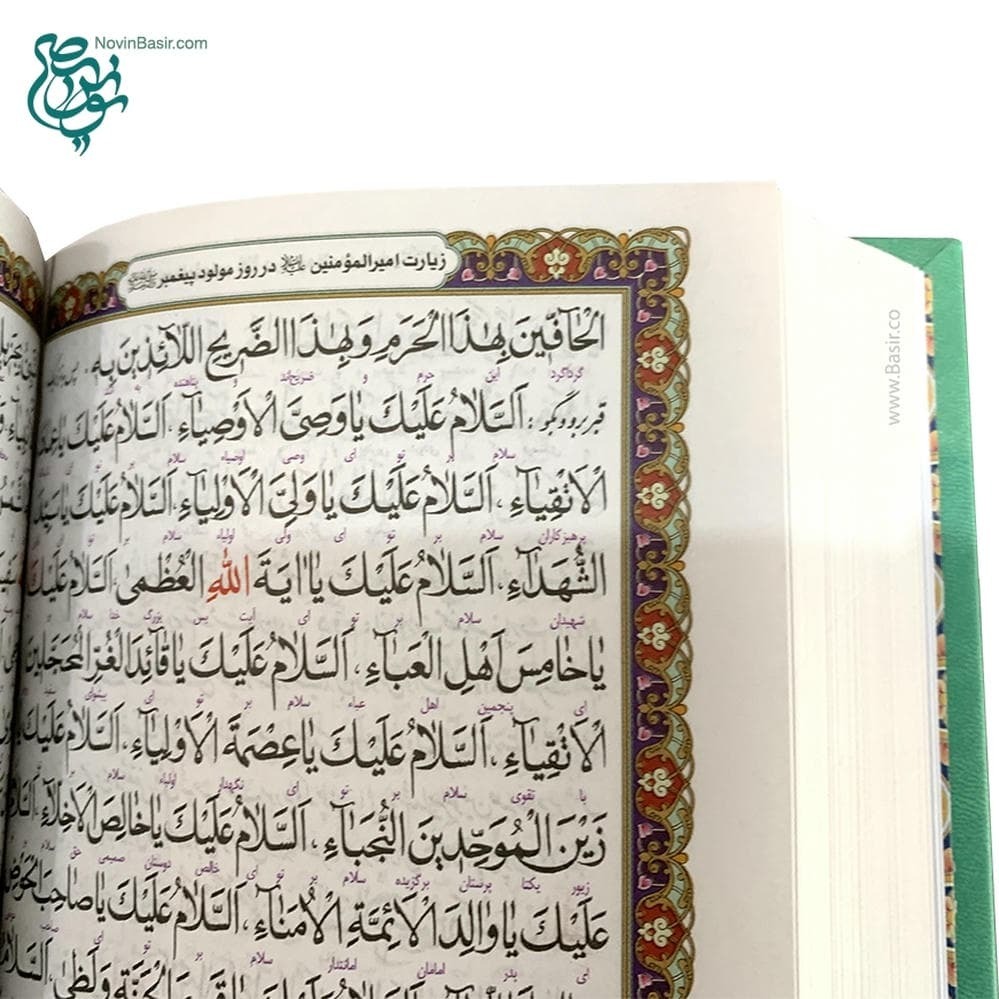 NovinBasir.com
زیارت امیرالمؤمنین علیه‌السلام در روز مولود پیغمبر
اَلْحآفّینَ بِهٰذَا الْحَرَمِ وَ بِهٰذَا الضَّریحِ اللّآئِذینَ بِهِ
گرداگرد این حرم و ضریح‌اند و پناهنده به
قبر برو و بگو: اَلسَّلامُ عَلَیْكَ یا وَصِیَّ الْاَوْصِیآءِ، اَلسَّلامُ عَلَیْكَ یا
سلام بر تو ای وصی اوصیاء سلام بر تو
الْاَتْقِیآءِ، اَلسَّلامُ عَلَیْكَ یا وَلِیَّ الْاَوْلِیآءِ، اَلسَّلامُ عَلَیْكَ یا سَیِّدَ
پرهیزکاران سلام بر تو ای ولی اولیاء سلام بر تو
الشُّهَدآءِ، اَلسَّلامُ عَلَیْكَ یا ایَةَ اللهِ الْعُظْمیٰ، اَلسَّلامُ عَلَیْكَ
شهیدان سلام بر تو ای آیت بس بزرگ خدا سلام بر
یا خامِسَ اَهْلِ الْعَبآءِ، اَلسَّلامُ عَلَیْكَ یا قآئِدَ الْغُرِّ الْمُحَجَّلینَ
ای پنجمین اهل عباء سلام بر تو ای پیشوای
الْاَتْقِیآءِ، اَلسَّلامُ عَلَیْكَ یا عِصْمَةَ الْاَوْلِیآءِ، اَلسَّلامُ عَلَیْكَ
با تقوی سلام بر تو ای نگهدار اولیاء سلام بر
زَیْنَ الْمُوَحِّدینَ النُّجَبآءِ، اَلسَّلامُ عَلَیْكَ یا خالِصَ الْاَخِلّآءِ،
زیور یکتا پرستان برگزیده سلام بر تو ای خالص دوستان صمیمی حق
عَلَیْكَ یا والِدَ الْاَئِمَّةِ الْاُمَنآءِ، اَلسَّلامُ عَلَیْكَ یا صاحِبَ الْحَوْضِ
ای پدر امامان امانتدار سلام بر تو ای صاحب
الْجَنَّةِ وَ لَظیٰ، اَلسَّلامُ
www.Basir.co